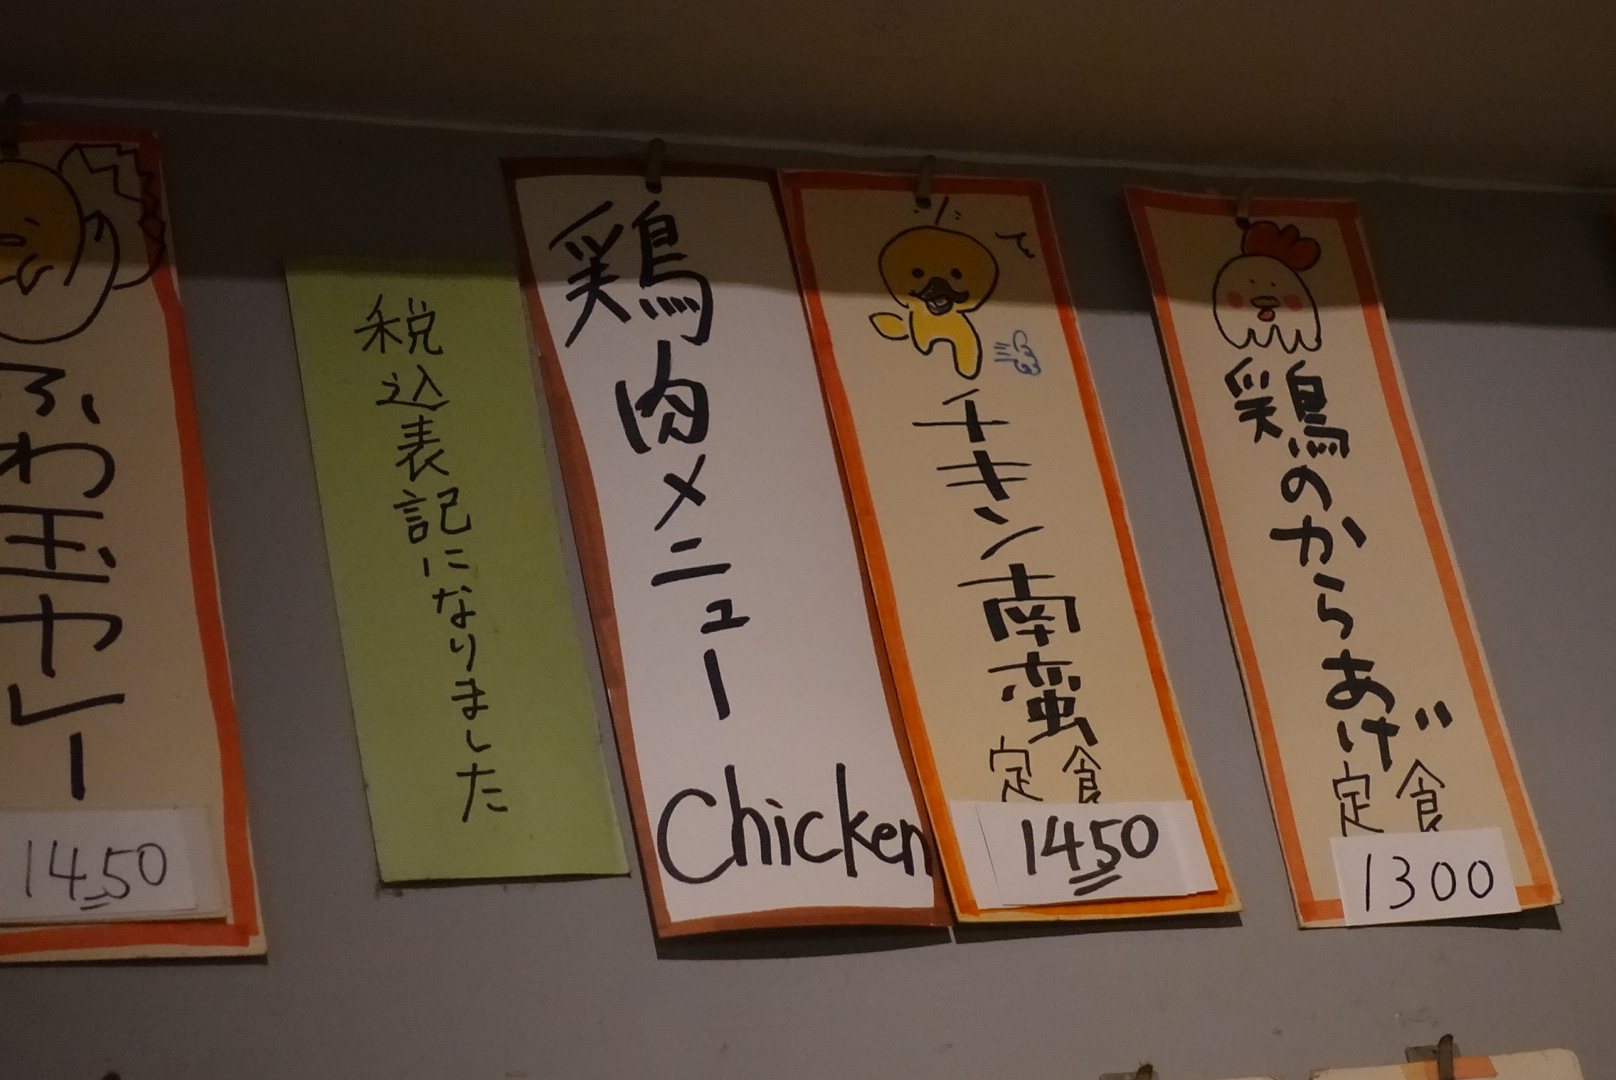 ふわ玉カレー
1450
税込表記になりました
鶏肉メニュー
Chicken
チキン南蛮
定食
1450
鶏のからあげ
定食
1300